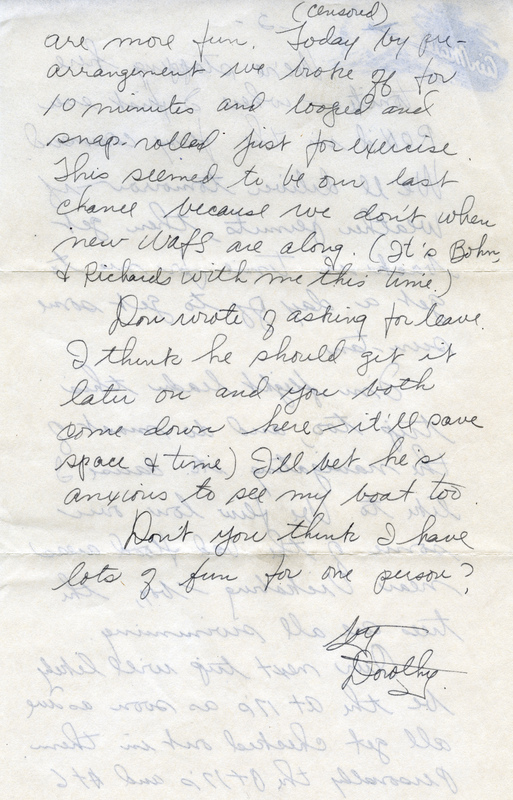 (censored)
are more fun. Today by pre-
arrangement we broke off for
10 minutes and looped and
snap-rolled just for exercise.
This seemed to be our last
chance because we don't when
new WAFS are along. (It's Bohn
& Richards with me this time.)
Don wrote of asking for leave.
I think he should get it
later on and you both
come down here - it'll save
space & time) I'll bet he's
anxious to see my boat too.
Don't you think I have
lots of fun for one person?
Dorothy.